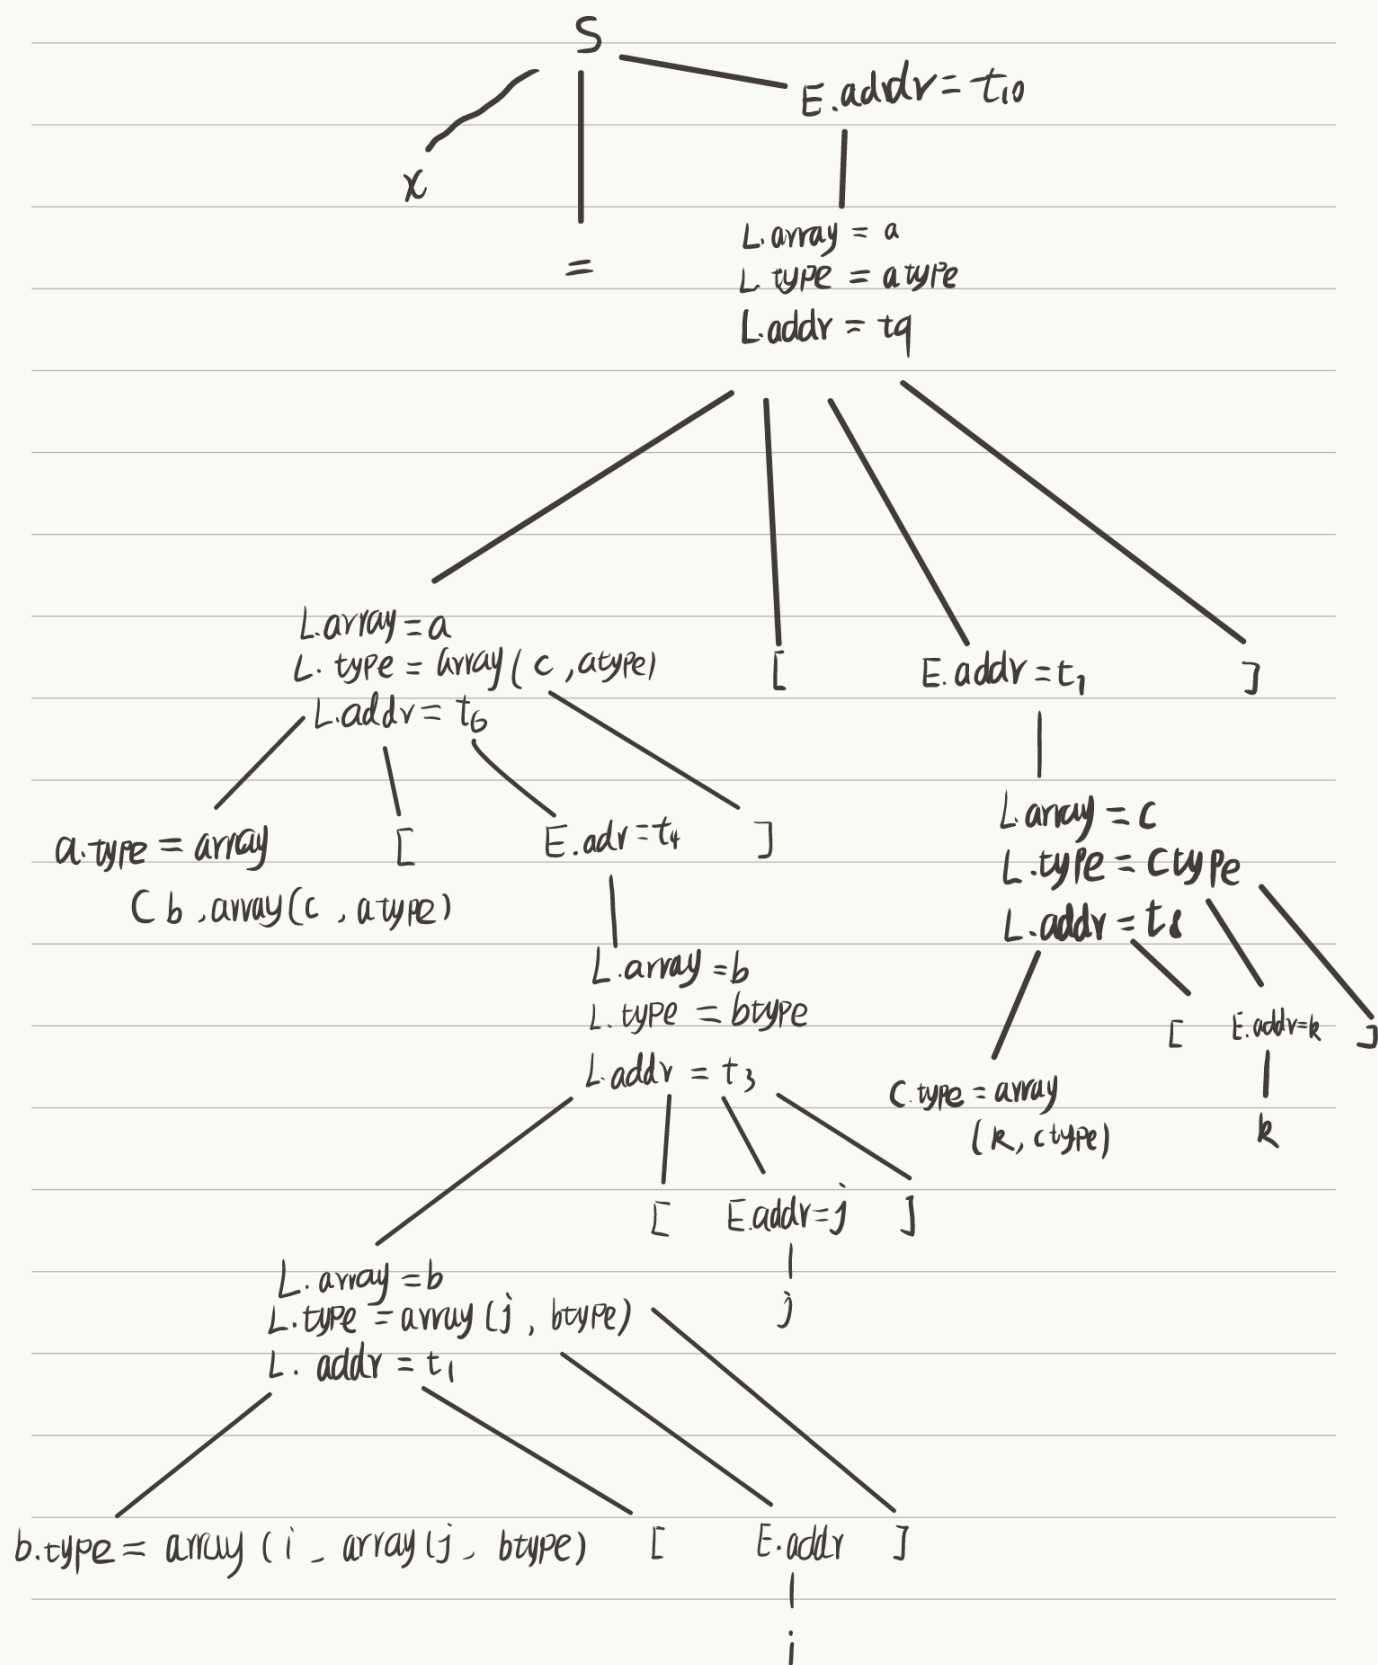 S
E.addr = t10
x
=
L.array = a
L.type = atype
L.addr = t9
L.array = a
L.type = array(c, atype)
L.addr = t6
[
E.addr = t7
]
a.type = array
(b, array(c, atype)
[
E.adr = t4
]
L.array = c
L.type = ctype
L.addr = t8
L.array = b
L.type = btype
L.addr = t3
[
E.addr = k
]
c.type = array
(k, ctype)
k
[
E.addr = j
]
L.array = b
L.type = array(j, btype)
L.addr = t1
j
b.type = array(i, array(j, btype)
[
E.addr
]
i